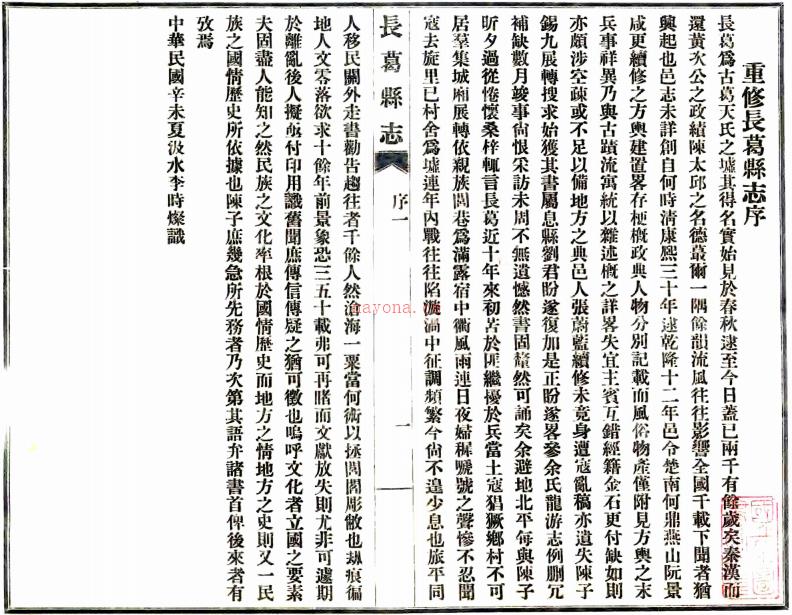 重修長葛縣志序
長葛爲古葛天氏之墟其得名實始見於春秋逮至今日蓋已兩千有餘歲矣秦漢而
還黃次公之政績陳太邱之名德蕞爾一隅餘韻流風往往影響全國千載下聞者猶
興起也邑志未詳創自何時清康熙三十年逮乾隆十二年邑令楚南何鼎燕山阮景
咸更續修之方輿建置畧存梗概政典人物分別記載而風俗物產僅附見方輿之末
兵事祥異乃與古蹟流寓統以雜述概之詳畧失宜主賓互錯經籍金石更付缺如則
亦頗涉空疎或不足以備地方之典邑人張蔚藍續修未竟身遭寇亂稿亦遺失陳子
錫九展轉搜求始獲其書屬息縣劉君盼遂復加是正盼遂畧參余氏龍游志例刪冗
補缺數月竣事尙恨采訪未周不無遺憾然書固釐然可誦矣余避地北平每與陳子
昕夕過從惓懷桑梓輒言長葛近十年來初苦於匪繼擾於兵當土寇猖獗鄉村不可
居羣集城廂展轉依親族閭巷爲滿露宿中衢風雨連日夜婦穉號之聲慘不忍聞
寇去旋里已村舍爲墟連年內戰往往陷漩渦中征調頻繁今尙不遑少息也旅平同
長葛縣志
序一
一
人移民關外走書勸告趨往者千餘人然滄海一粟當何術以拯閭閻彫敝也刼痕徧
地人文零落欲求十餘年前景象恐三五十載弗可再睹而文獻放失則尤非可遽期
於離亂後人擬亟付印用識舊聞庶傳信傳疑之猶可徵也嗚呼文化者立國之要素
夫固盡人能知之然民族之文化率根於國情歷史而地方之情地方之史則又一民
族之國情歷史所依據也陳子庶幾急所先務者乃次第其語弁諸書首俾後來者有
攷焉
中華民國辛未夏汲水李時燦識
mayona.